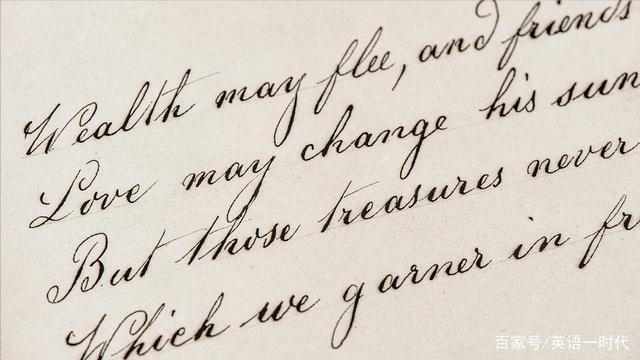 Wealth may flee, and friends
Love may change his sun
But those treasures never
Which we garner in fr
百家号/英语一时代